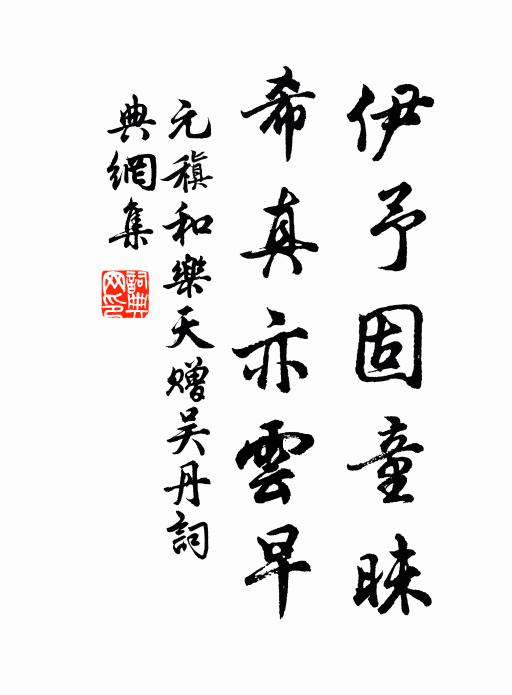 伊予固童昧
希真亦雲早
元稹和樂天贈吴丹詞
典網集
詞典
网印